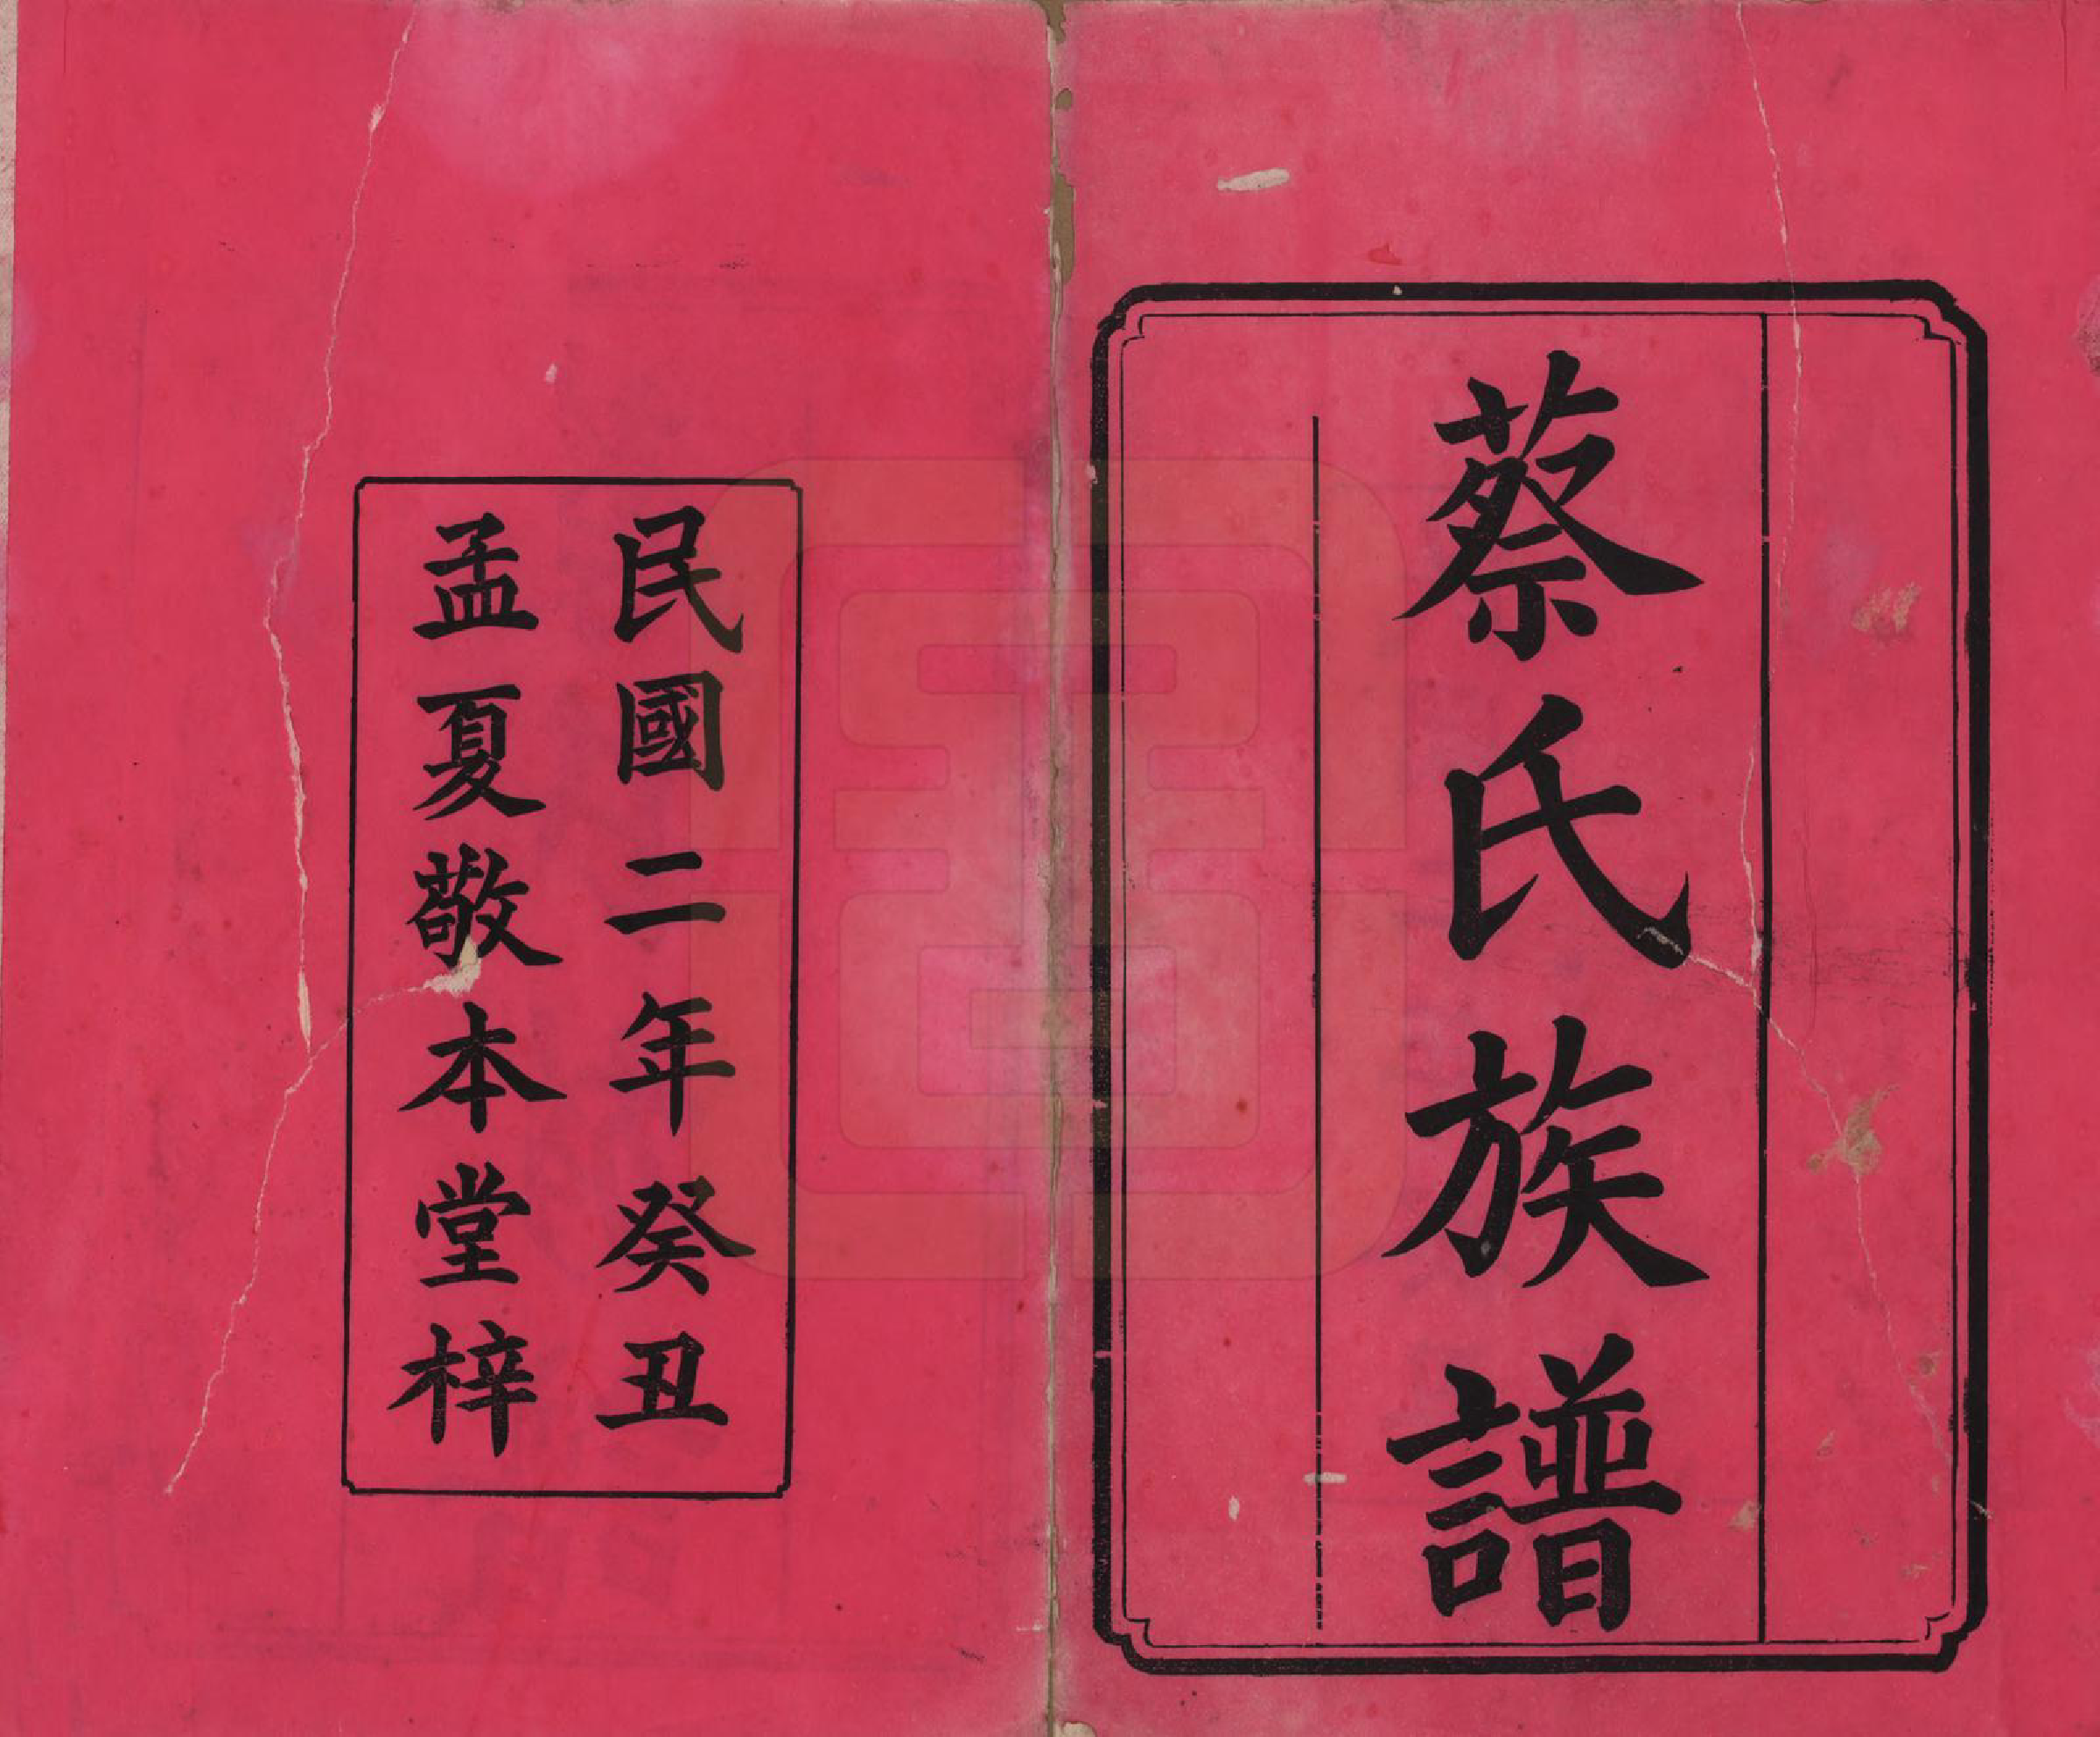 蔡氏族譜
民國二年癸丑
孟夏敬本堂梓